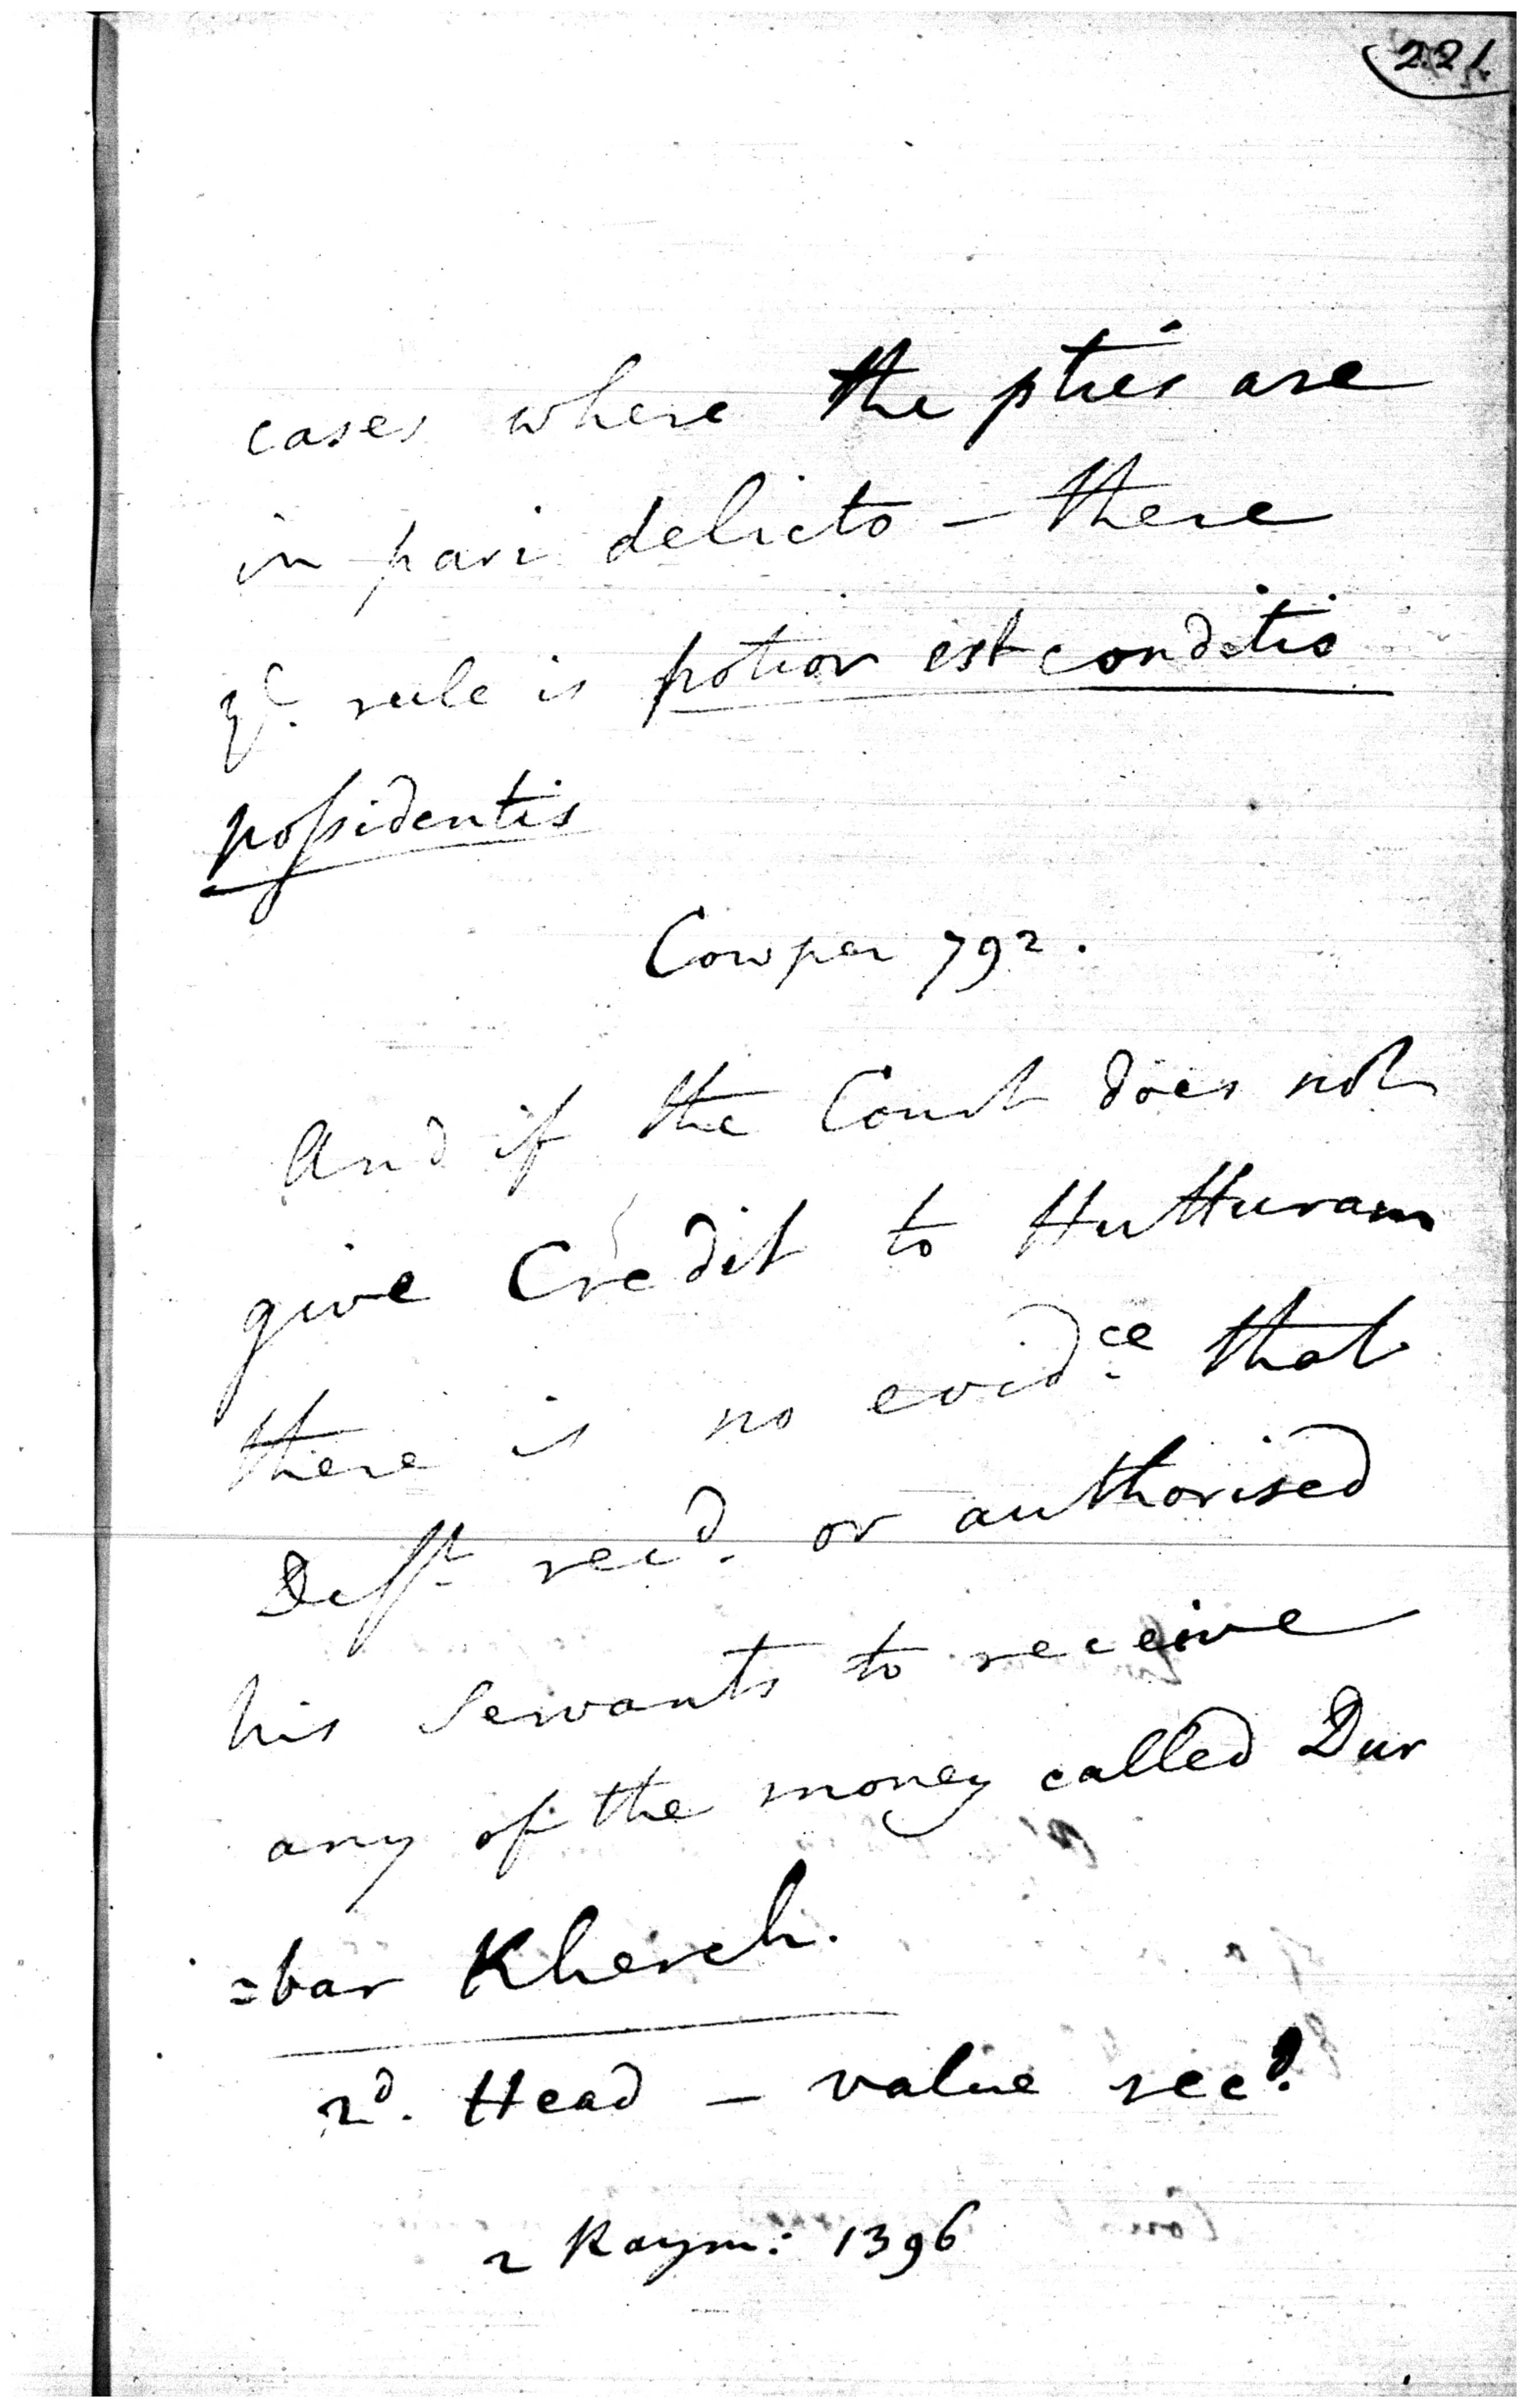 221.
cases where the pties are
in pari delicto - there
ye. rule is potior est conditio
possidentis
Cowper 792.
And if the Court does not
give Credit to Hutturam
there is no evidce. that
Defft. recd. or authorised
his Servants to receive
any of the money called Dur
=bar Kherch.
2d. Head - value recd.
2 Raym: 1396